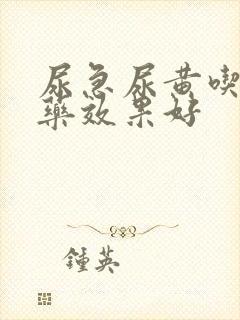 尿急尿黄喫
藥效果好
鍾英